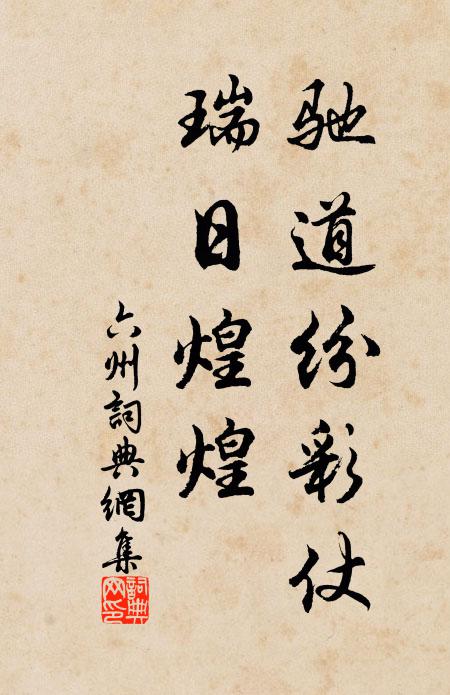 驰道纷彩仗
瑞日煌煌
六州詞典網集
詞典网印